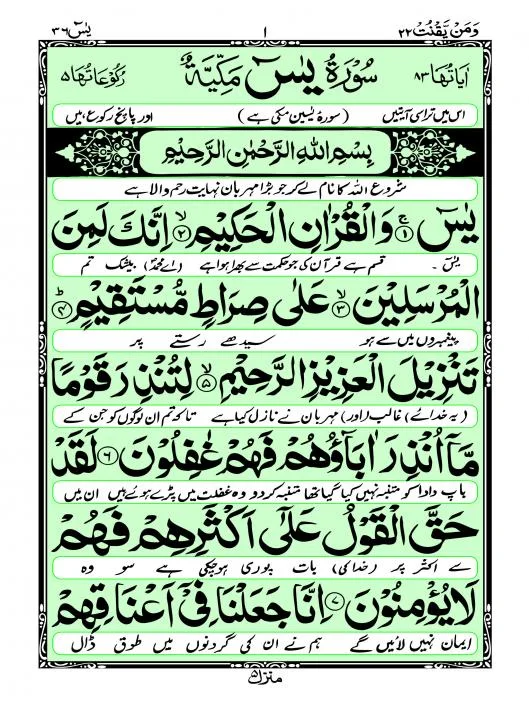 وَمَنۡ يَّقۡنُتۡ ٢٢ ١ يٰسٓ ٣٦
اٰيَاتُهَا ٨٣ سُوۡرَةُ يٰسٓ مَكِّيَّةٌ رُكُوۡعَاتُهَا ٥
اس میں تراسی آیتیں (سورۂ یٰسین مکی ہے) اور پانچ رکوع ہیں
بِسۡمِ اللّٰهِ الرَّحۡمٰنِ الرَّحِيۡمِ
شروع اللہ کا نام لے کر جو بڑا مہربان نہایت رحم والا ہے
يٰسٓ ۚ‏ ﴿١﴾ وَالۡقُرۡاٰنِ الۡحَكِيۡمِ ۙ‏ ﴿٢﴾ اِنَّكَ لَمِنَ
یٰسٓ۔ قسم ہے قرآن کی جو حکمت سے بھرا ہوا ہے (اے محمدؐ) بیشک تم
الۡمُرۡسَلِيۡنَ ۙ‏ ﴿٣﴾ عَلٰى صِرَاطٍ مُّسۡتَقِيۡمٍ ؕ‏ ﴿٤﴾
پیغمبروں میں سے ہو سیدھے رستے پر
تَنۡزِيۡلَ الۡعَزِيۡزِ الرَّحِيۡمِ ۙ‏ ﴿٥﴾ لِتُنۡذِرَ قَوۡمًا
(یہ خدائے) غالب (اور) مہربان نے نازل کیا ہے تاکہ تم ان لوگوں کو جن کے
مَّاۤ اُنۡذِرَ اٰبَآؤُهُمۡ فَهُمۡ غٰفِلُوۡنَ‏ ﴿٦﴾ لَقَدۡ
باپ دادا کو متنبہ نہیں کیا گیا تھا متنبہ کردو وہ غفلت میں پڑے ہوئے ہیں ان میں
حَقَّ الۡقَوۡلُ عَلٰٓى اَكۡثَرِهِمۡ فَهُمۡ
سے اکثر پر (خدا کی) بات پوری ہوچکی ہے سو وہ
لَا يُؤۡمِنُوۡنَ‏ ﴿٧﴾ اِنَّا جَعَلۡنَا فِىۡۤ اَعۡنَاقِهِمۡ
ایمان نہیں لائیں گے ہم نے ان کی گردنوں میں طوق ڈال
منزل ٥